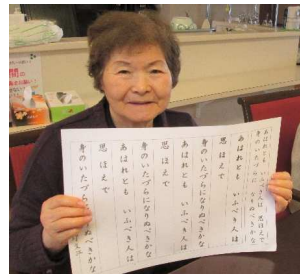 あはれとも いふべき人は 思ほえで
身のいたづらに なりぬべきかな
あはれとも いふべき人は
思ほえで
身のいたづらになりぬべきかな
あはれとも いふべき人は
思ほえで
身のいたづらになりぬべきかな
あはれとも いふべき人は
思ほえで
身のいたづらになりぬべきかな
間の